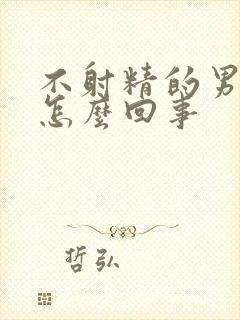 不射精的男
怎麼回事
哲弘